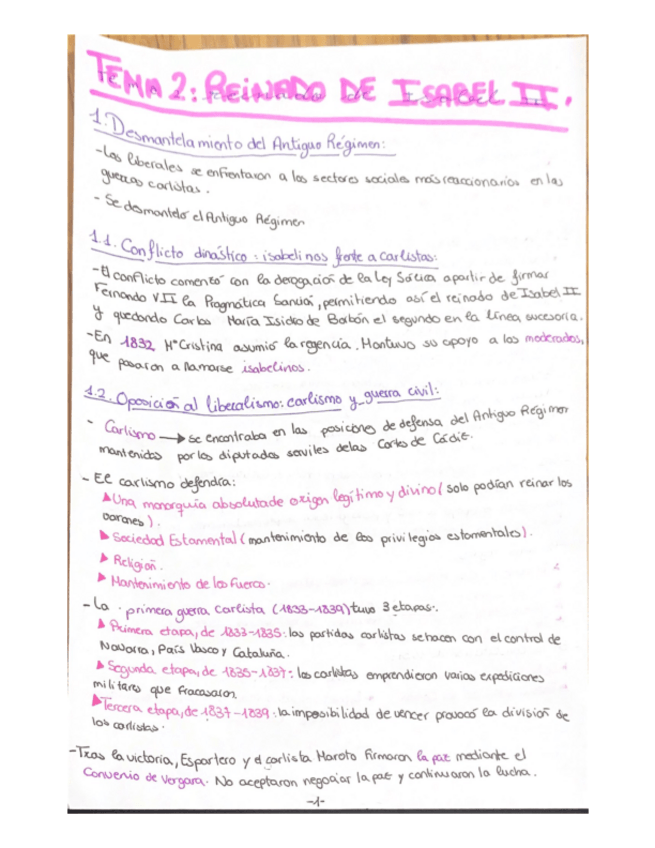 TEMA 2: REINADO DE ISABEL II.
1. Desmantelamiento del Antiguo Régimen:
- Los liberales se enfrentaron a los sectores sociales más reaccionarios en las
guerras carlistas.
- Se desmanteló el Antiguo Régimen
1.1. Conflicto dinástico: isabelinos frente a carlistas:
- El conflicto comenzó con la derogación de la Ley Sálica a partir de firmar
Fernando VII la Pragmática Sanción, permitiendo así el reinado de Isabel II
y quedando Carlos María Isidro de Borbón el segundo en la línea sucesoria.
- En 1832 Mª Cristina asumió la regencia. Mantuvo su apoyo a los moderados,
que pasaron a llamarse isabelinos.
1.2. Oposición al liberalismo: carlismo y guerra civil:
- Carlismo → se encontraba en las posiciones de defensa del Antiguo Régimen
mantenidos por los diputados serviles de las Cortes de Cádiz.
- El carlismo defendía:
▶ Una monarquía absoluta de origen legítimo y divino (solo podían reinar los
varones).
▶ Sociedad Estamental (mantenimiento de los privilegios estamentales).
▶ Religión.
▶ Mantenimiento de los Fueros.
- La primera guerra carlista (1833-1839) tuvo 3 etapas:
▶ Primera etapa, de 1833-1835: las partidas carlistas se hacen con el control de
Navarra, País Vasco y Cataluña.
▶ Segunda etapa, de 1835-1837: los carlistas emprendieron varias expediciones
militares que fracasaron.
▶ Tercera etapa, de 1837-1839: la imposibilidad de vencer provocó la división de
los carlistas.
- Tras la victoria, Espartero y el carlista Maroto firmaron la paz mediante el
Convenio de Vergara. No aceptaron negociar la paz y continuaron la lucha.
-1-